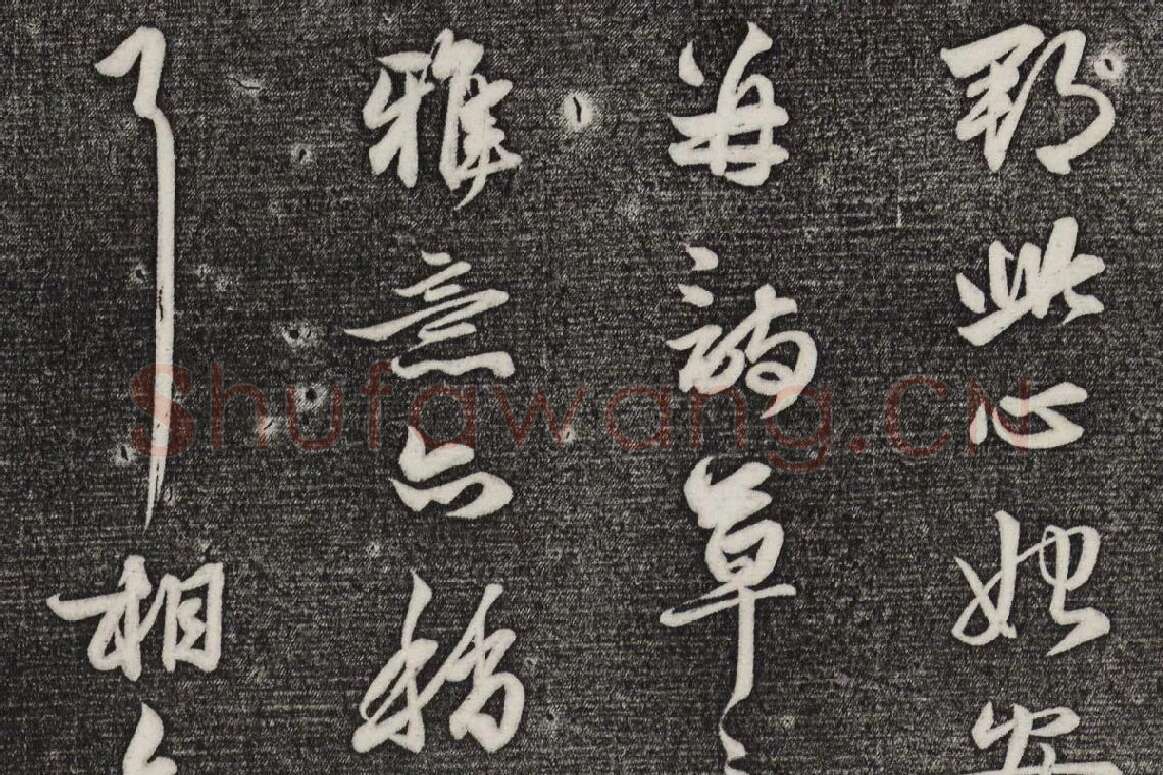 耶此心始安
每誦草
雅意亦稍
了相
Shufawang.CN